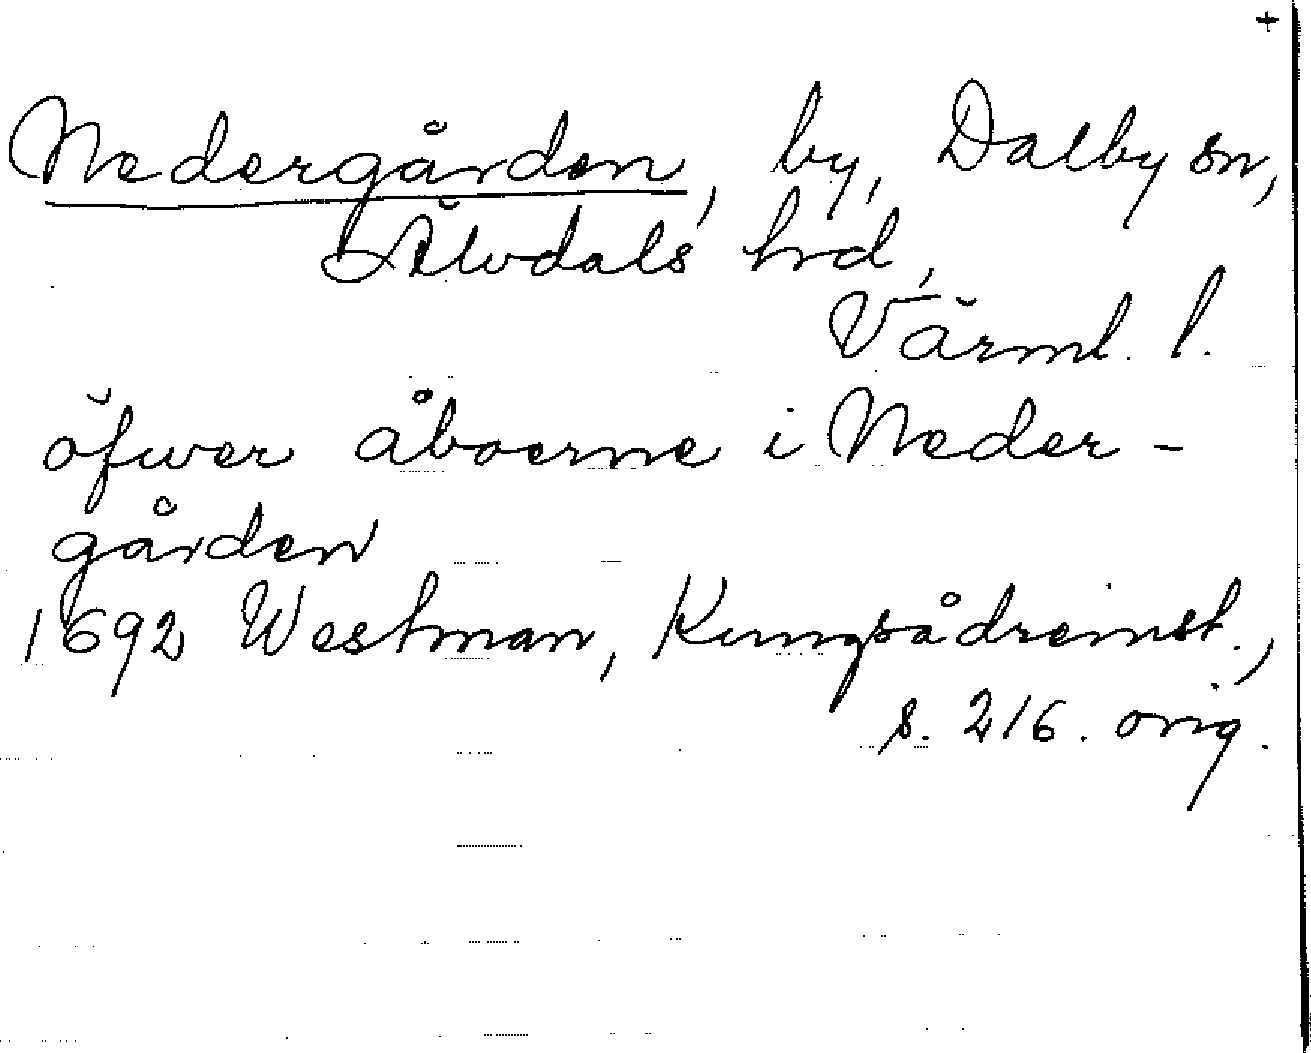 +
Nedergården, by, Dalby sn,
Älvdals hrd,
Värml. l.
öfwer åboerne i Neder-
gården
1692 Westman, Kungsådreinst.,
s. 216. orig.